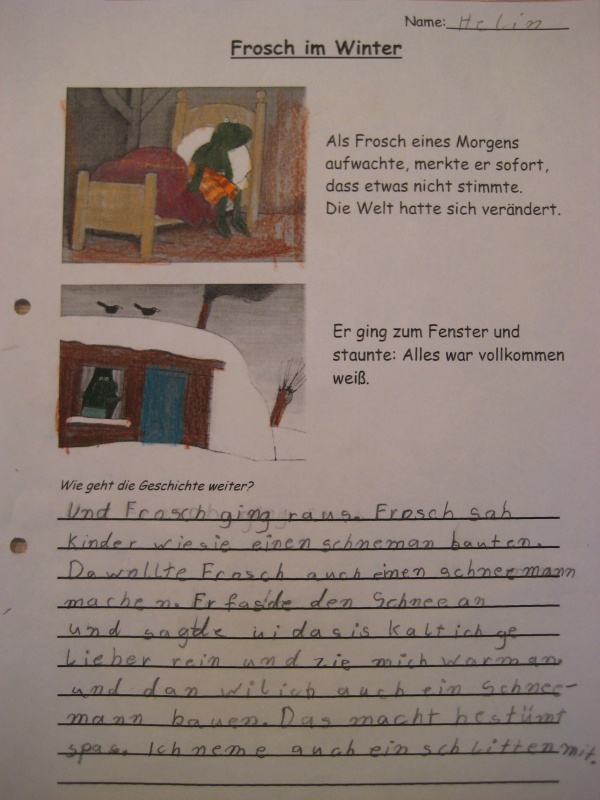 Name: Helin
Frosch im Winter
Als Frosch eines Morgens
aufwachte, merkte er sofort,
dass etwas nicht stimmte.
Die Welt hatte sich verändert.
Er ging zum Fenster und
staunte: Alles war vollkommen
weiß.
Wie geht die Geschichte weiter?
Und Frosch ging raus. Frosch sah
Kinder wie sie einen schneman bauten.
Da wollte Frosch auch einen schneemann
machen. Er fas'de den Schnee an
und sagde ui das is kalt ich ge
lieber rein und zie mich warman
und dan wil ich auch ein Schnee-
mann bauen. Das macht bestümt
spas. Ich neme auch ein schlitten mit.